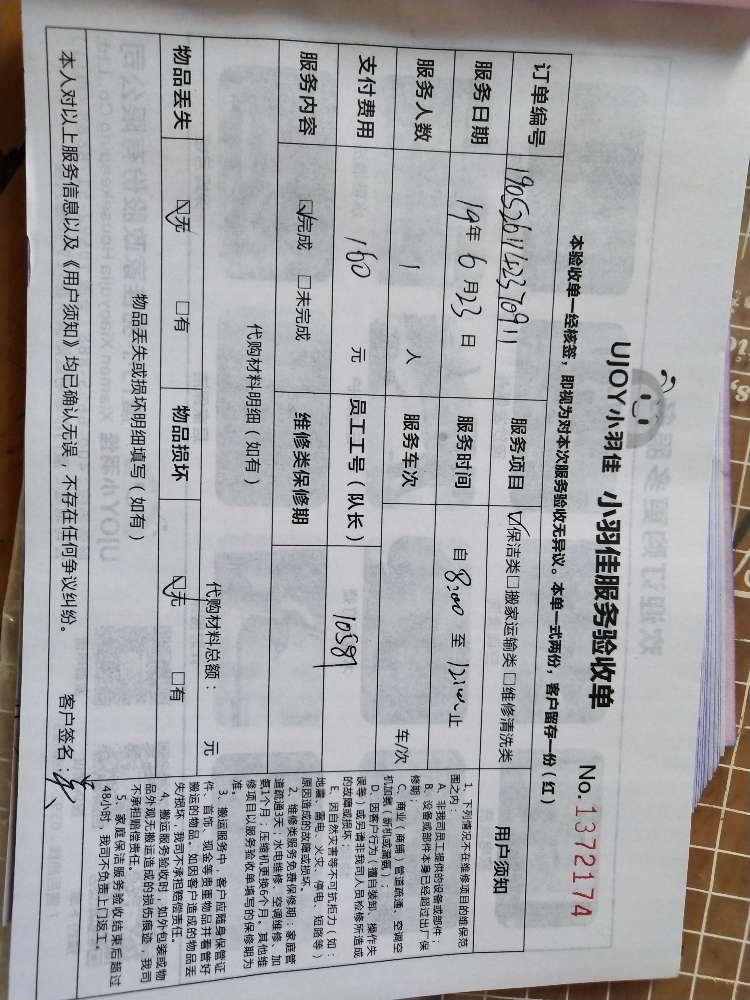 UJOY小羽佳 小羽佳服务验收单 No.1372174
本验收单一经核签，即视为对本次服务验收无异议。本单一式两份，客户留存一份（红）
订单编号 190526114237091 服务项目 ☑保洁类☐搬家运输类☐维修清洗类
服务日期 19年6月23日 服务时间 自8:00至12:00止
服务人数 1人 服务车次 车/次
支付费用 160元 员工工号（队长） 10381
服务内容 ☑完成 ☐未完成 维修类保修期
代购材料明细（如有）
代购材料总额： 元
物品丢失 ☑无 ☐有 物品损坏 ☑无 ☐有
物品丢失或损坏明细填写（如有）
本人对以上服务信息以及《用户须知》均已确认无误，不存在任何争议纠纷。 客户签名：
用户须知
1、下列情况不在维修项目的维保范
围之内：
A、非我司员工提供的设备或部件；
B、设备或部件本身已经超过出厂保
修期；
C、商业（商铺）管道疏通、空调空
机加氨（新机或漏氨）；
D、因客户行为（擅自装卸、操作失
误等）或另请非我司人员检修所造成
的故障或损坏；
E、因自然灾害等不可抗拒力（如：
地震、雷电、火灾、停电、短路等）
原因造成的故障或损坏。
2、维修类服务免费保修期：家庭管
道疏通3天；水电维修、空调维修、加
氨1个月；压缩机更换6个月。其他维
修项目以服务验收单填写的保修期为
准。
3、搬运服务中，客户应随身保管证
件、首饰、现金等贵重物品并看管好
搬运的物品。如因客户造成的物品丢
失/损坏，我司不承担赔偿责任。
4、搬运服务验收时，如外包装或物
品外观无搬运造成的损伤痕迹，我司
不承担赔偿责任。
5、家庭保洁服务验收结束后超过
48小时，我司不负责上门返工。